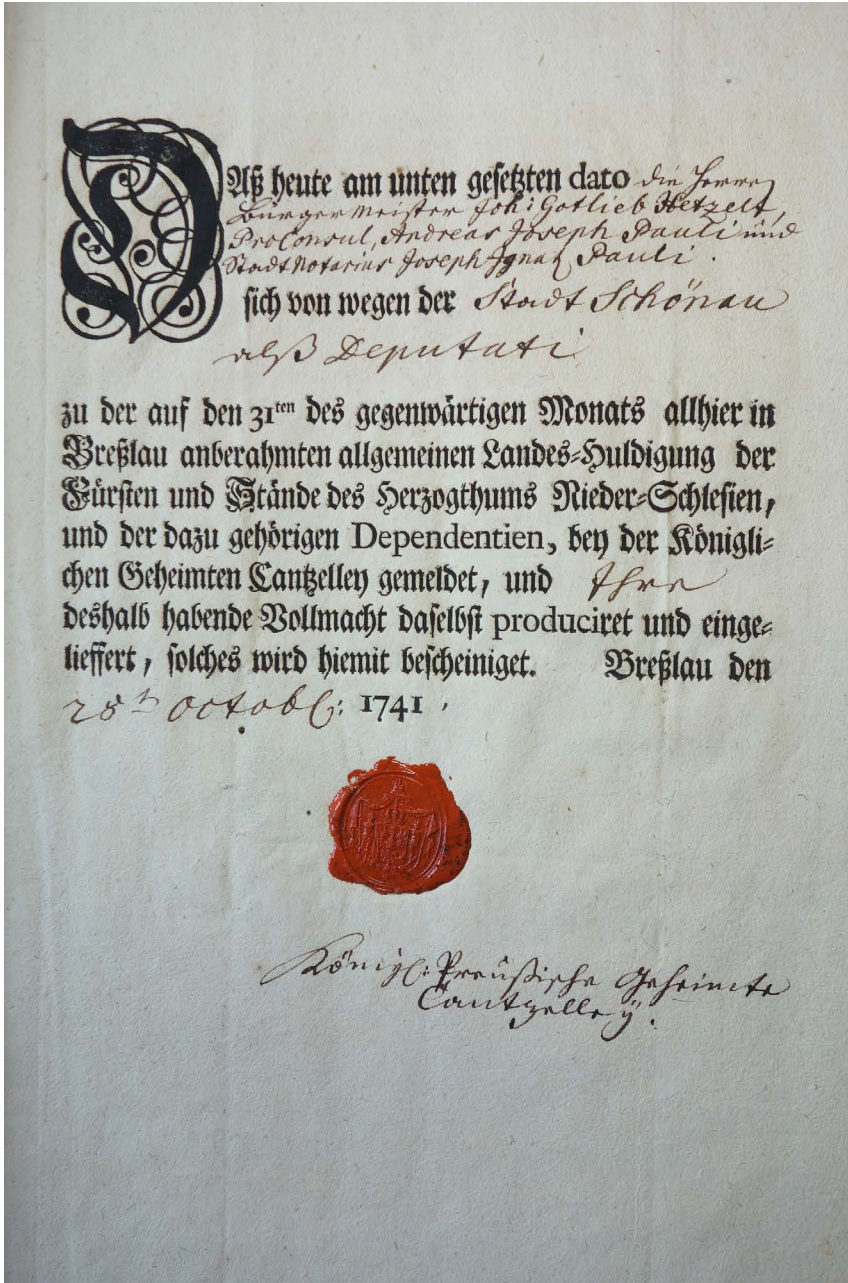 DAß heute am unten gesetzten dato die Herren
Bürgermeister Joh: Gotlieb Hetzelt,
ProConsul, Andreas Joseph Pauli und
Stadt Notarius Joseph Ignatz Pauli.
sich von wegen der Stadt Schönau
alß Deputati
zu der auf den 31ten des gegenwärtigen Monats allhier in
Breßlau anberahmten allgemeinen Landes-Huldigung der
Fürsten und Stände des Herzogthums Nieder-Schlesien,
und der dazu gehörigen Dependentien, bey der Königli-
chen Geheimten Cantzelley gemeldet, und Ihre
deshalb habende Vollmacht daselbst produciret und einge-
lieffert, solches wird hiemit bescheiniget. Breßlau den
28t Octobl: 1741.
Königl: Preußische Geheimte
Cantzelley.